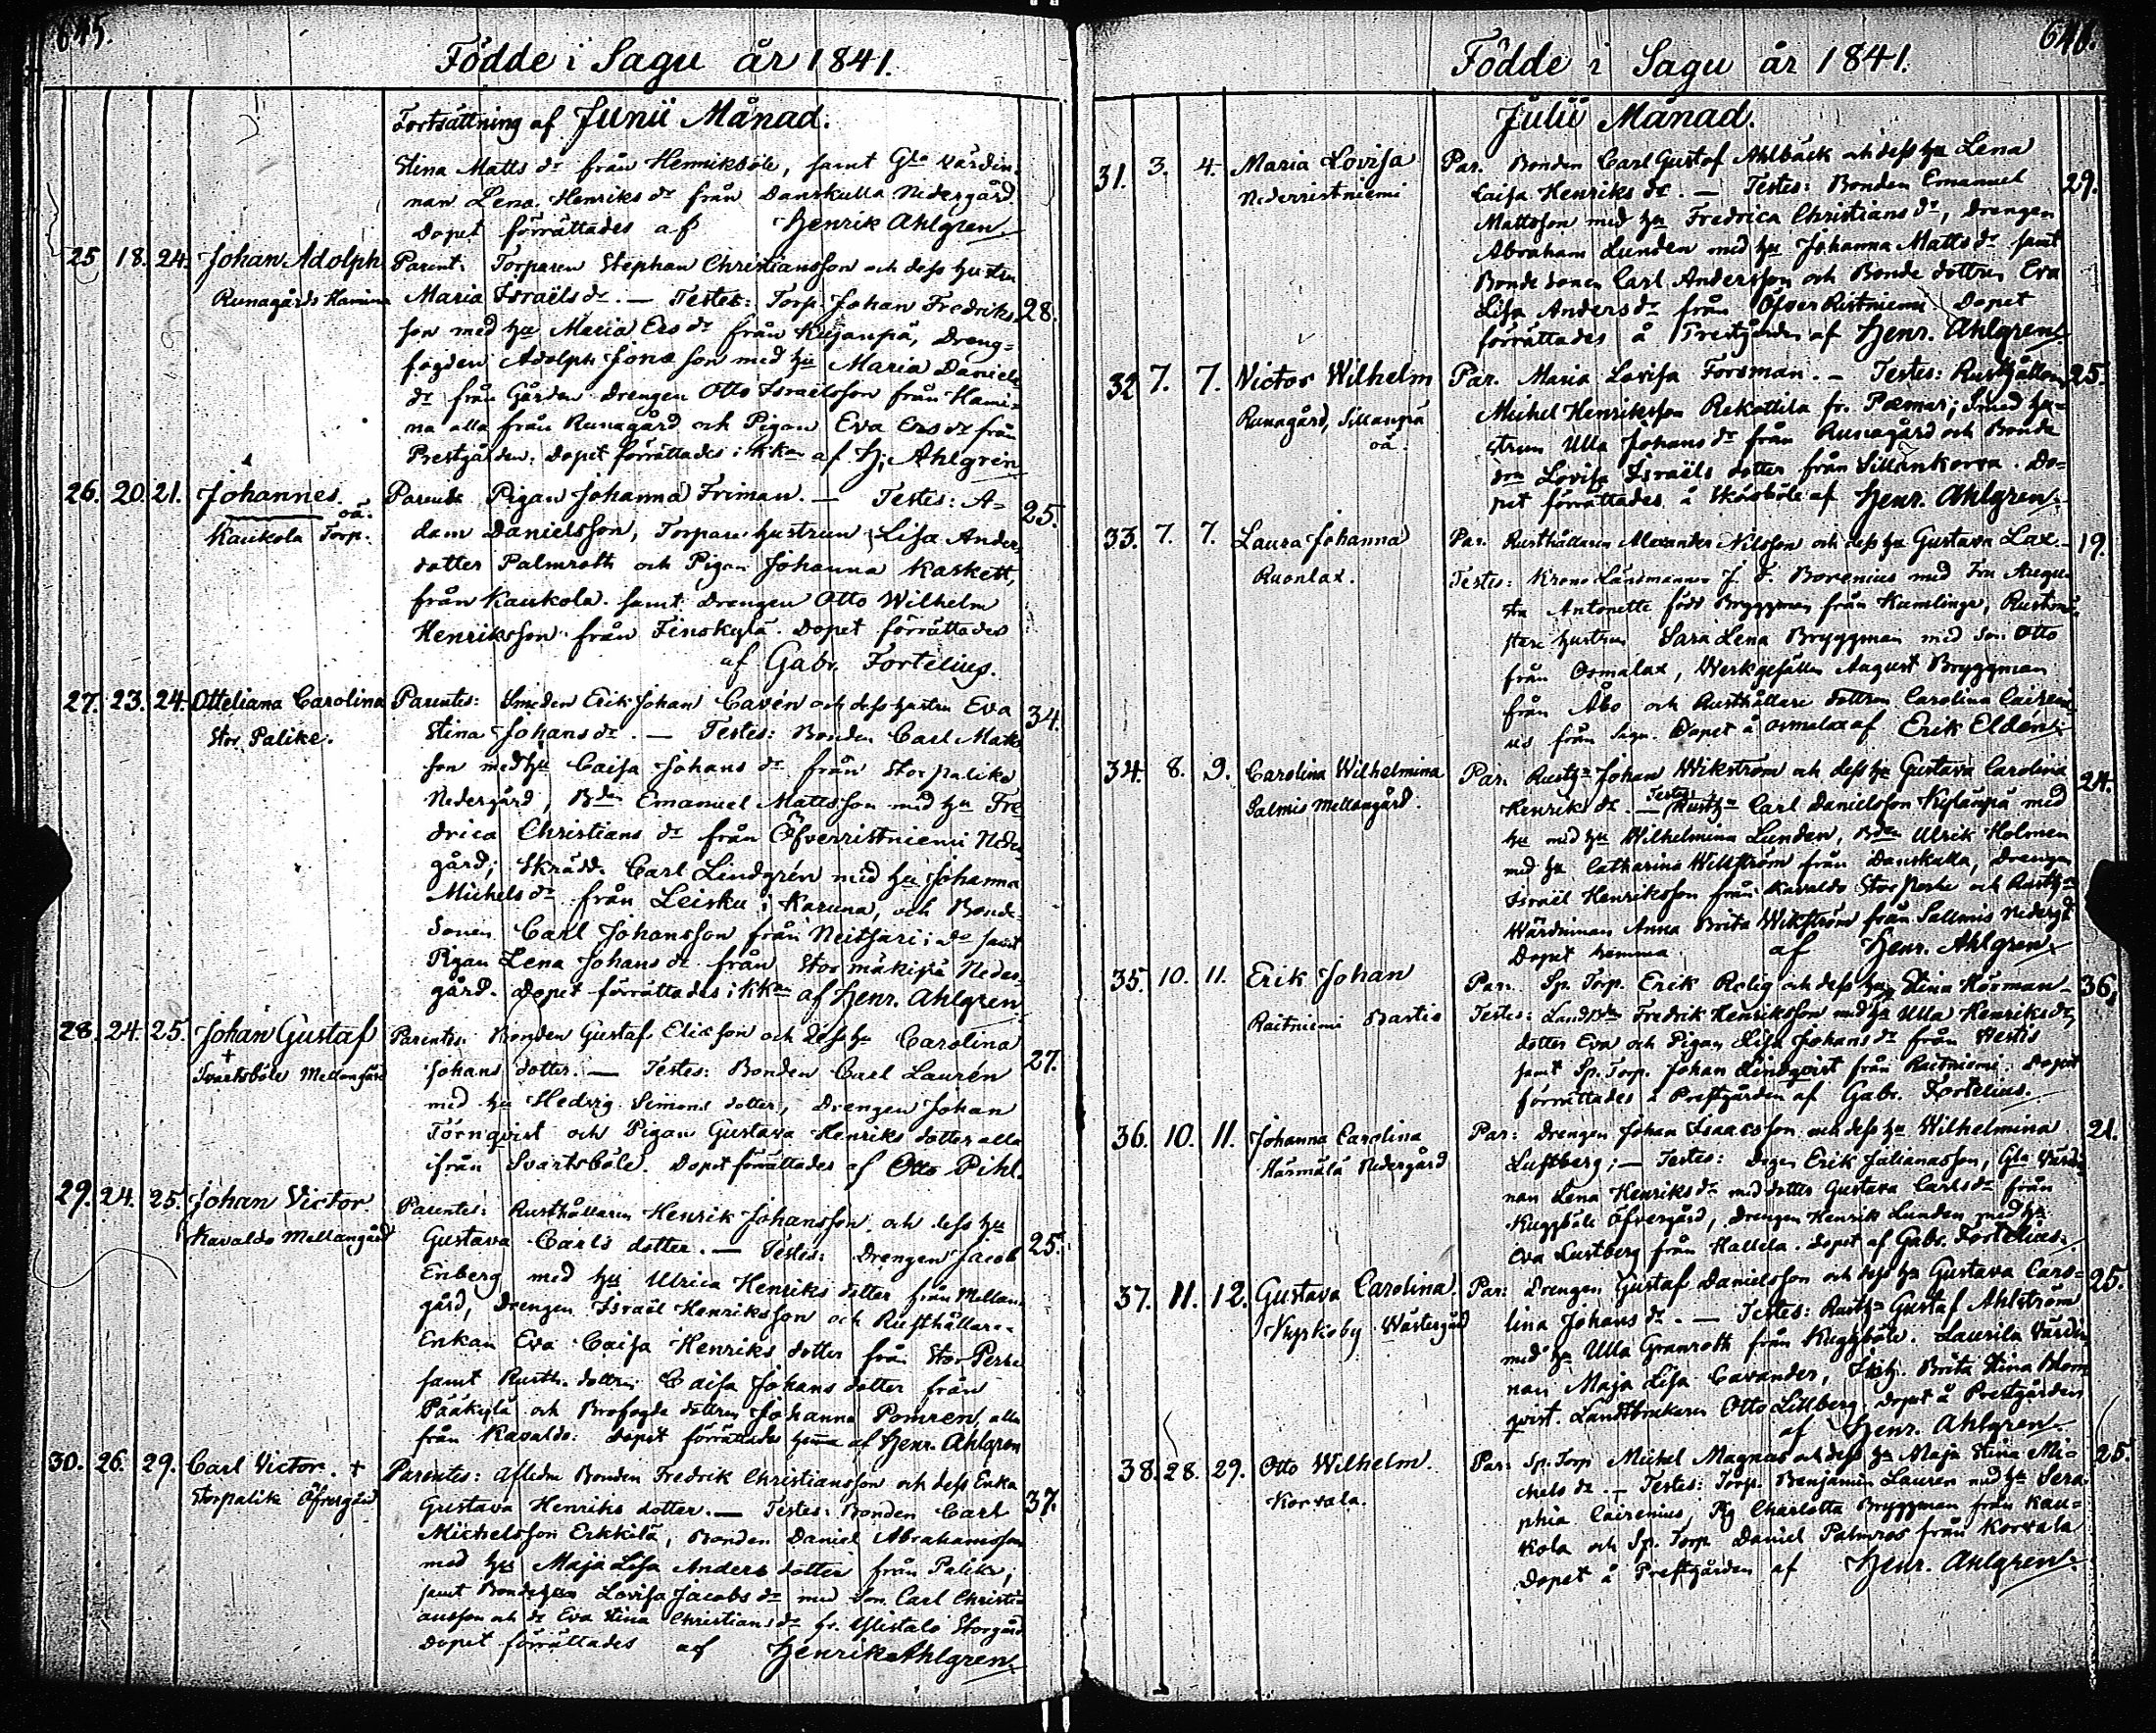 645.
Födde i Sagu år 1841.
Fortsättning af Junii Månad.
Stina Matts dr från Henriksböle, samt Gla Värdin-
nan Lena Henriks dr från Danskulla Nedergård.
Dopet förrättades af Henrik Ahlgren
25 18. 24. Johan Adolph Parent: Torparen Stephan Christiansson och dess hustru
Runagårds Hamina Maria Israëls dr. — Testes: Torp. Johan Fredriks- 28.
son med hu Maria Ers dr från Dreng-
fogden Adolph Jonæson med hu Maria Daniels
dr från Gården Drengen Otto Israelsson från Hami-
na alla från Runagård och Pigan Eva Ers dr från
Prestgården. Dopet förrättades i kkan af H: Ahlgren
26. 20. 21. Johannes. oä. Parents Pigan Johanna Friman. — Testes: A- 25.
Kaukola Torp. dam Danielsson, Torpare hustrun Lisa Anders
dotter Palmroth och Pigan Johanna Kaskett,
från Kaukola. samt Drengen Otto Wilhelm
Henriksson från Finskylä. Dopet förrättades
af Gabr. Fortelius.
27. 23. 24. Otteliana Carolina Parentes: Smeden Erik Johan Cavén och dess hustru Eva 34.
Stor Palike. Stina Johans dr. — Testes: Bonden Carl Mats
son med hu Caisa Johans dr från Storpalike
Nedergård, Bden Emanuel Mattsson med hu Fre
drica Christians dr från Öfverristniemi Neder
gård; Skrädd. Carl Lindgrén med hu Johanna
Michels dr från Leisku i Karuna, och Bonde
Sonen Carl Johansson från Neitsari i do samt
Pigan Lena Johans dr från Stormäkipä Neder
gård. Dopet förrättades i kkan af Henr. Ahlgren
28. 24. 25. Johan Gustaf Parentes: Bonden Gustaf Elicsson och dess hu Carolina 27.
+
Svartsböle Mellangård Johans dotter. — Testes: Bonden Carl Laurén
med hu Hedvig Simons dotter, Drengen Johan
Törnqvist och Pigan Gustava Henriks dotter alla
ifrån Svartsböle. Dopet förrättades af Otto Pihl.
29. 24. 25. Johan Victor. Parentes: Rusthållaren Henrik Johansson och dess hu 25.
Kavaldo Mellangård Gustava Carls dotter. — Testes: Drengen Jacob
Enberg med hu Ulrica Henriks dotter från Mellan-
gård, Drengen Israël Henriksson och Rusthållare-
Enkan Eva Caisa Henriks dotter från Stor Perhe
samt Rusth. dottren Caisa Johans dotter från
Pääkylä och Brofogde dottren Johanna Pomren, alla
från Kavaldo. Dopet förrättades hema af Henr. Ahlgren
30. 26. 29. Carl Victor. + Parentes: Afledne Bonden Fredrik Christiansson och dess Enka 37.
Storpalike Öfvergård Gustava Henriks dotter. — Testes: Bonden Carl
Michelsson Erkkilä, Bonden Daniel Abrahamsson
med hu Maja Lisa Anders dotter från Palike,
samt Lovisa Jacobs dr med Son Carl Christi-
ansson och dr Eva Stina Christians dr fr. Ylistalo Storgård
Dopet förrättades af Henrik Ahlgren
646.
Födde i Sagu år 1841.
Julii Månad.
31. 3. 4. Maria Lovisa Par. Bonden Carl Gustaf Ahlbäck och dess hu Lena 29.
Nederristniemi Caisa Henriks dr. — Testes: Bonden Emanuel
Mattsson med hu Fredrica Christians dr, Drengen
Abraham Lunden med hu Johanna Matts dr samt
Bonde sonen Carl Andersson och Bonde dottren Eva
Lisa Anders dr från Öfver Ristniemi Dopet
förrättades å Prestgården af Henr. Ahlgren
32 7. 7. Victor Wilhelm Par. Maria Lovisa Forsman. — Testes: Rusthållaren 25.
Runagård, Sillanpä oä. Michel Henriksson Rekottila fr. Pæmar; Smed hu-
strun Ulla Johans dr från Runagård och Bonde
drn Lovisa Israëls dotter från Sillankorva. Do-
pet förrättades å Skärsböle af Henr. Ahlgren.
33. 7. 7. Laura Johanna Par. Rusthållaren Alexander Nilsson och dess hu Gustava Lax. — 19.
Ruonlax. Testes: Krono Länsmannen J. F. Borenius med Fru Augu-
sta Antonette född Bryggman från Kamlinge, Rustmä-
stare hustrun Sara Lena Bryggman med Son Otto
från Osmalax, Werkgesällen August Bryggman
från Åbo och Rusthållare dottren Carolina Caireni-
us från Sagu. Dopet å Osmalax af Erik Eldén
34. 8. 9. Carolina Wilhelmina Par. Rusth Johan Wikström och dess hu Gustava Carolina 24.
Salmis Mellangård. Henriks dr. — Testes: Rusth Carl Danielsson Kylänpä med
hu med hu Wilhelmina Lunden, Bden Ulrik Holmen
med hu Catharina Wikström från Danskulla, Drengen
Israël Henriksson från Kavaldo Stor Perhe och Rusth
Wärdinnan Anna Brita Wikström från Salmis Nedergd
Dopet hemma af Henr. Ahlgren
35. 10. 11. Erik Johan Par. Sp. Torp. Erik Rolig och dess hu Stina Hörman — 36.
Raitniemi Bastis Testes: Landbn Fredrik Henriksson med hu Ulla Henriks dr,
dotter Eva och Pigan Lisa Johans dr från Hestis
samt Sp. Torp. Johan Lindqvist från Raitniemi. Dopet
förrättades å Prestgården af Gabr. Fortelius.
36. 10. 11. Johanna Carolina Par: Drengen Johan Isaacsson och dess hu Wilhelmina 21.
Härmälä Nedergård Lustberg; — Testes: Drgen Erik Julianasson, Gla Värdi
nan Lena Henriks dr med dotter Gustava Carls dr från
Kuggböle Öfvergård, Drengen Henrik Lunden med hu
Eva Lustberg från Hallela. Dopet af Gabr. Fortelius.
37. 11. 12. Gustava Carolina. Par: Drengen Gustaf Danielsson och dess hu Gustava Caro- 25.
Kyrkoby Wästergård lina Johans dr. — Testes: Rusth Gustaf Ahlström
med hu Ulla Granroth från Kuggböle. Laurila Värdin
nan Maja Lisa Cavander, Brita Stina Blom
qvist. Landtbrukaren Otto Lillberg, dopet å Prestgården
af Henr. Ahlgren
38. 28. 29. Otto Wilhelm. Par: Sp. Torp Michel Magnus och dess hu Maja Stina Mi- 25.
Korvala. chels dr. — Testes: Torp. Benjamin Lauren med hu Sera
phia Cairenius, Pig Charlotta Bryggman från Kau-
kola och Sp. Torp Daniel Palmros från Korvala
Dopet å Prestgården af Henr. Ahlgren